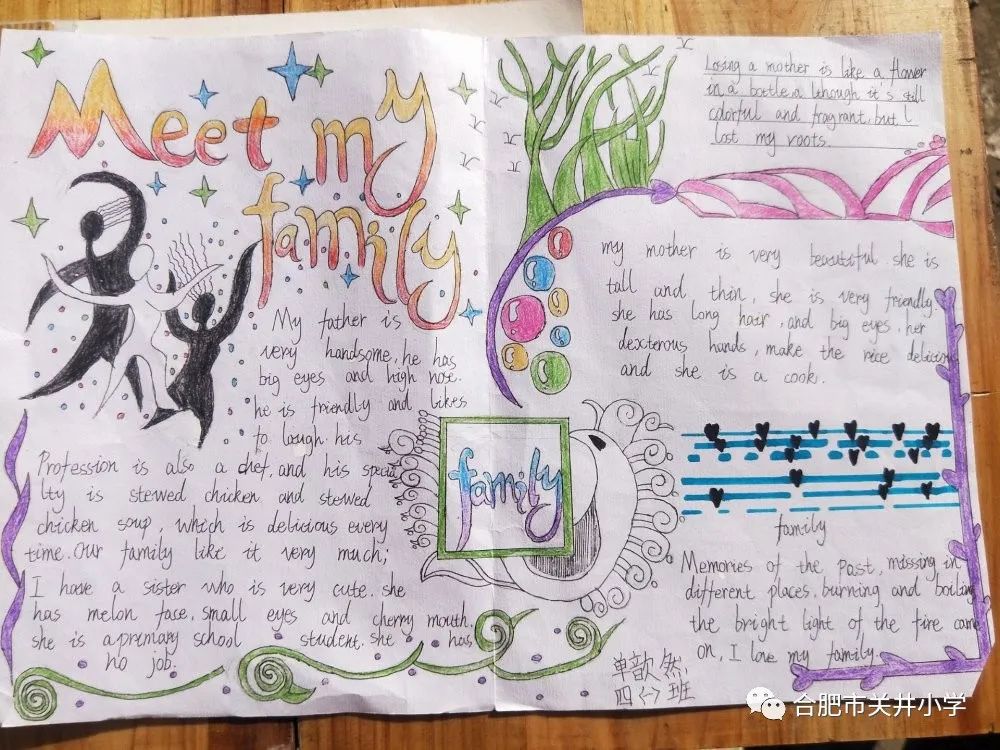 Meet my
family
My father is
very handsome, he has
big eyes and high nose.
he is friendly and likes
to laugh. his
Profession is also a chef, and his specia
lty is stewed chicken and stewed
chicken soup, which is delicious every
time. Our family like it very much;
I have a sister who is very cute. she
has melon face, small eyes and cherry mouth.
she is a premary school student. she has
no job.
Losing a mother is like a flower
in a bottle, although it's still
colorful and fragrant, but I
lost my roots.
my mother is very beautiful. she is
tall and thin, she is very friendly.
she has long hair, and big eyes, her
dexterous hands, make the rice delicious
and she is a cook.
family
family
Memories of the past, missing in
different places, burning and boiling
the bright light of the fire came
on, I love my family.
单歆然
四(7)班
合肥市关井小学